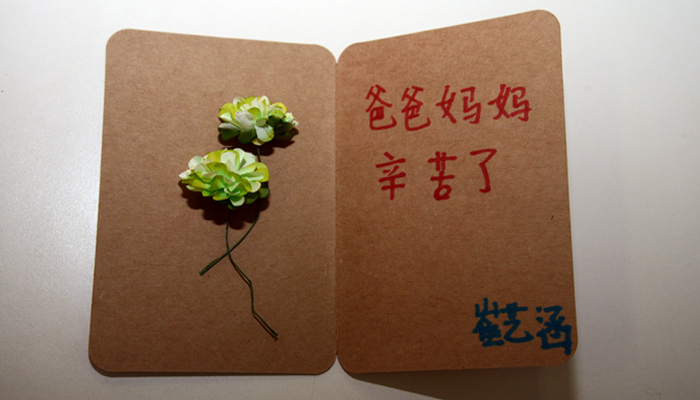 爸爸妈妈
辛苦了
崔艺涵